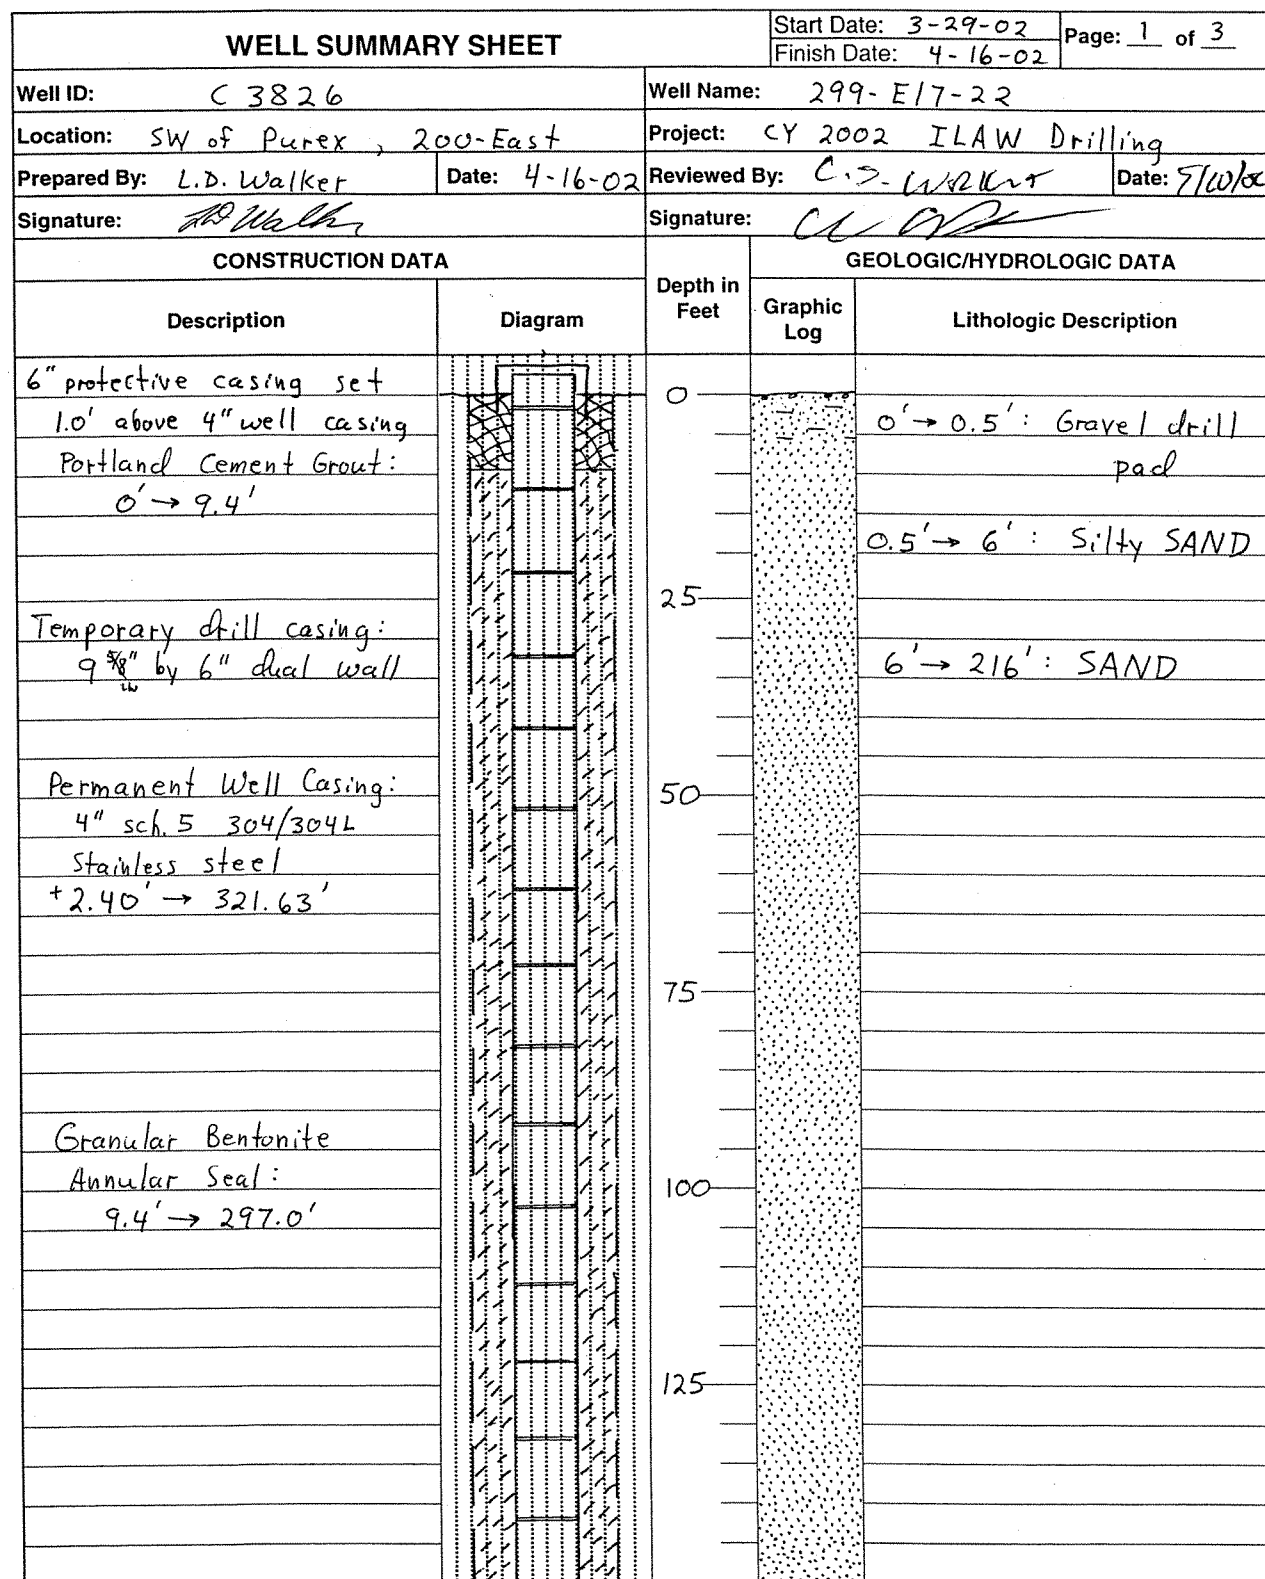 WELL SUMMARY SHEET
Start Date: 3-29-02
Finish Date: 4-16-02
Page: 1 of 3
Well ID: C3826
Well Name: 299-E17-22
Location: SW of Purex, 200-East
Project: CY 2002 ILAW Drilling
Prepared By: L.D. Walker
Date: 4-16-02
Reviewed By: C.S.
Date:
Signature: LD Walker
Signature:
CONSTRUCTION DATA
GEOLOGIC/HYDROLOGIC DATA
Description
Diagram
Depth in Feet
Graphic Log
Lithologic Description
6" protective casing set
1.0' above 4" well casing
Portland Cement Grout:
0' → 9.4'
Temporary drill casing:
9 5/8" by 6" dual wall
LW
Permanent Well Casing:
4" sch. 5 304/304L
Stainless steel
+2.40' → 321.63'
Granular Bentonite
Annular Seal:
9.4' → 297.0'
0
25
50
75
100
125
0' → 0.5': Gravel drill
pad
0.5' → 6': Silty SAND
6' → 216': SAND